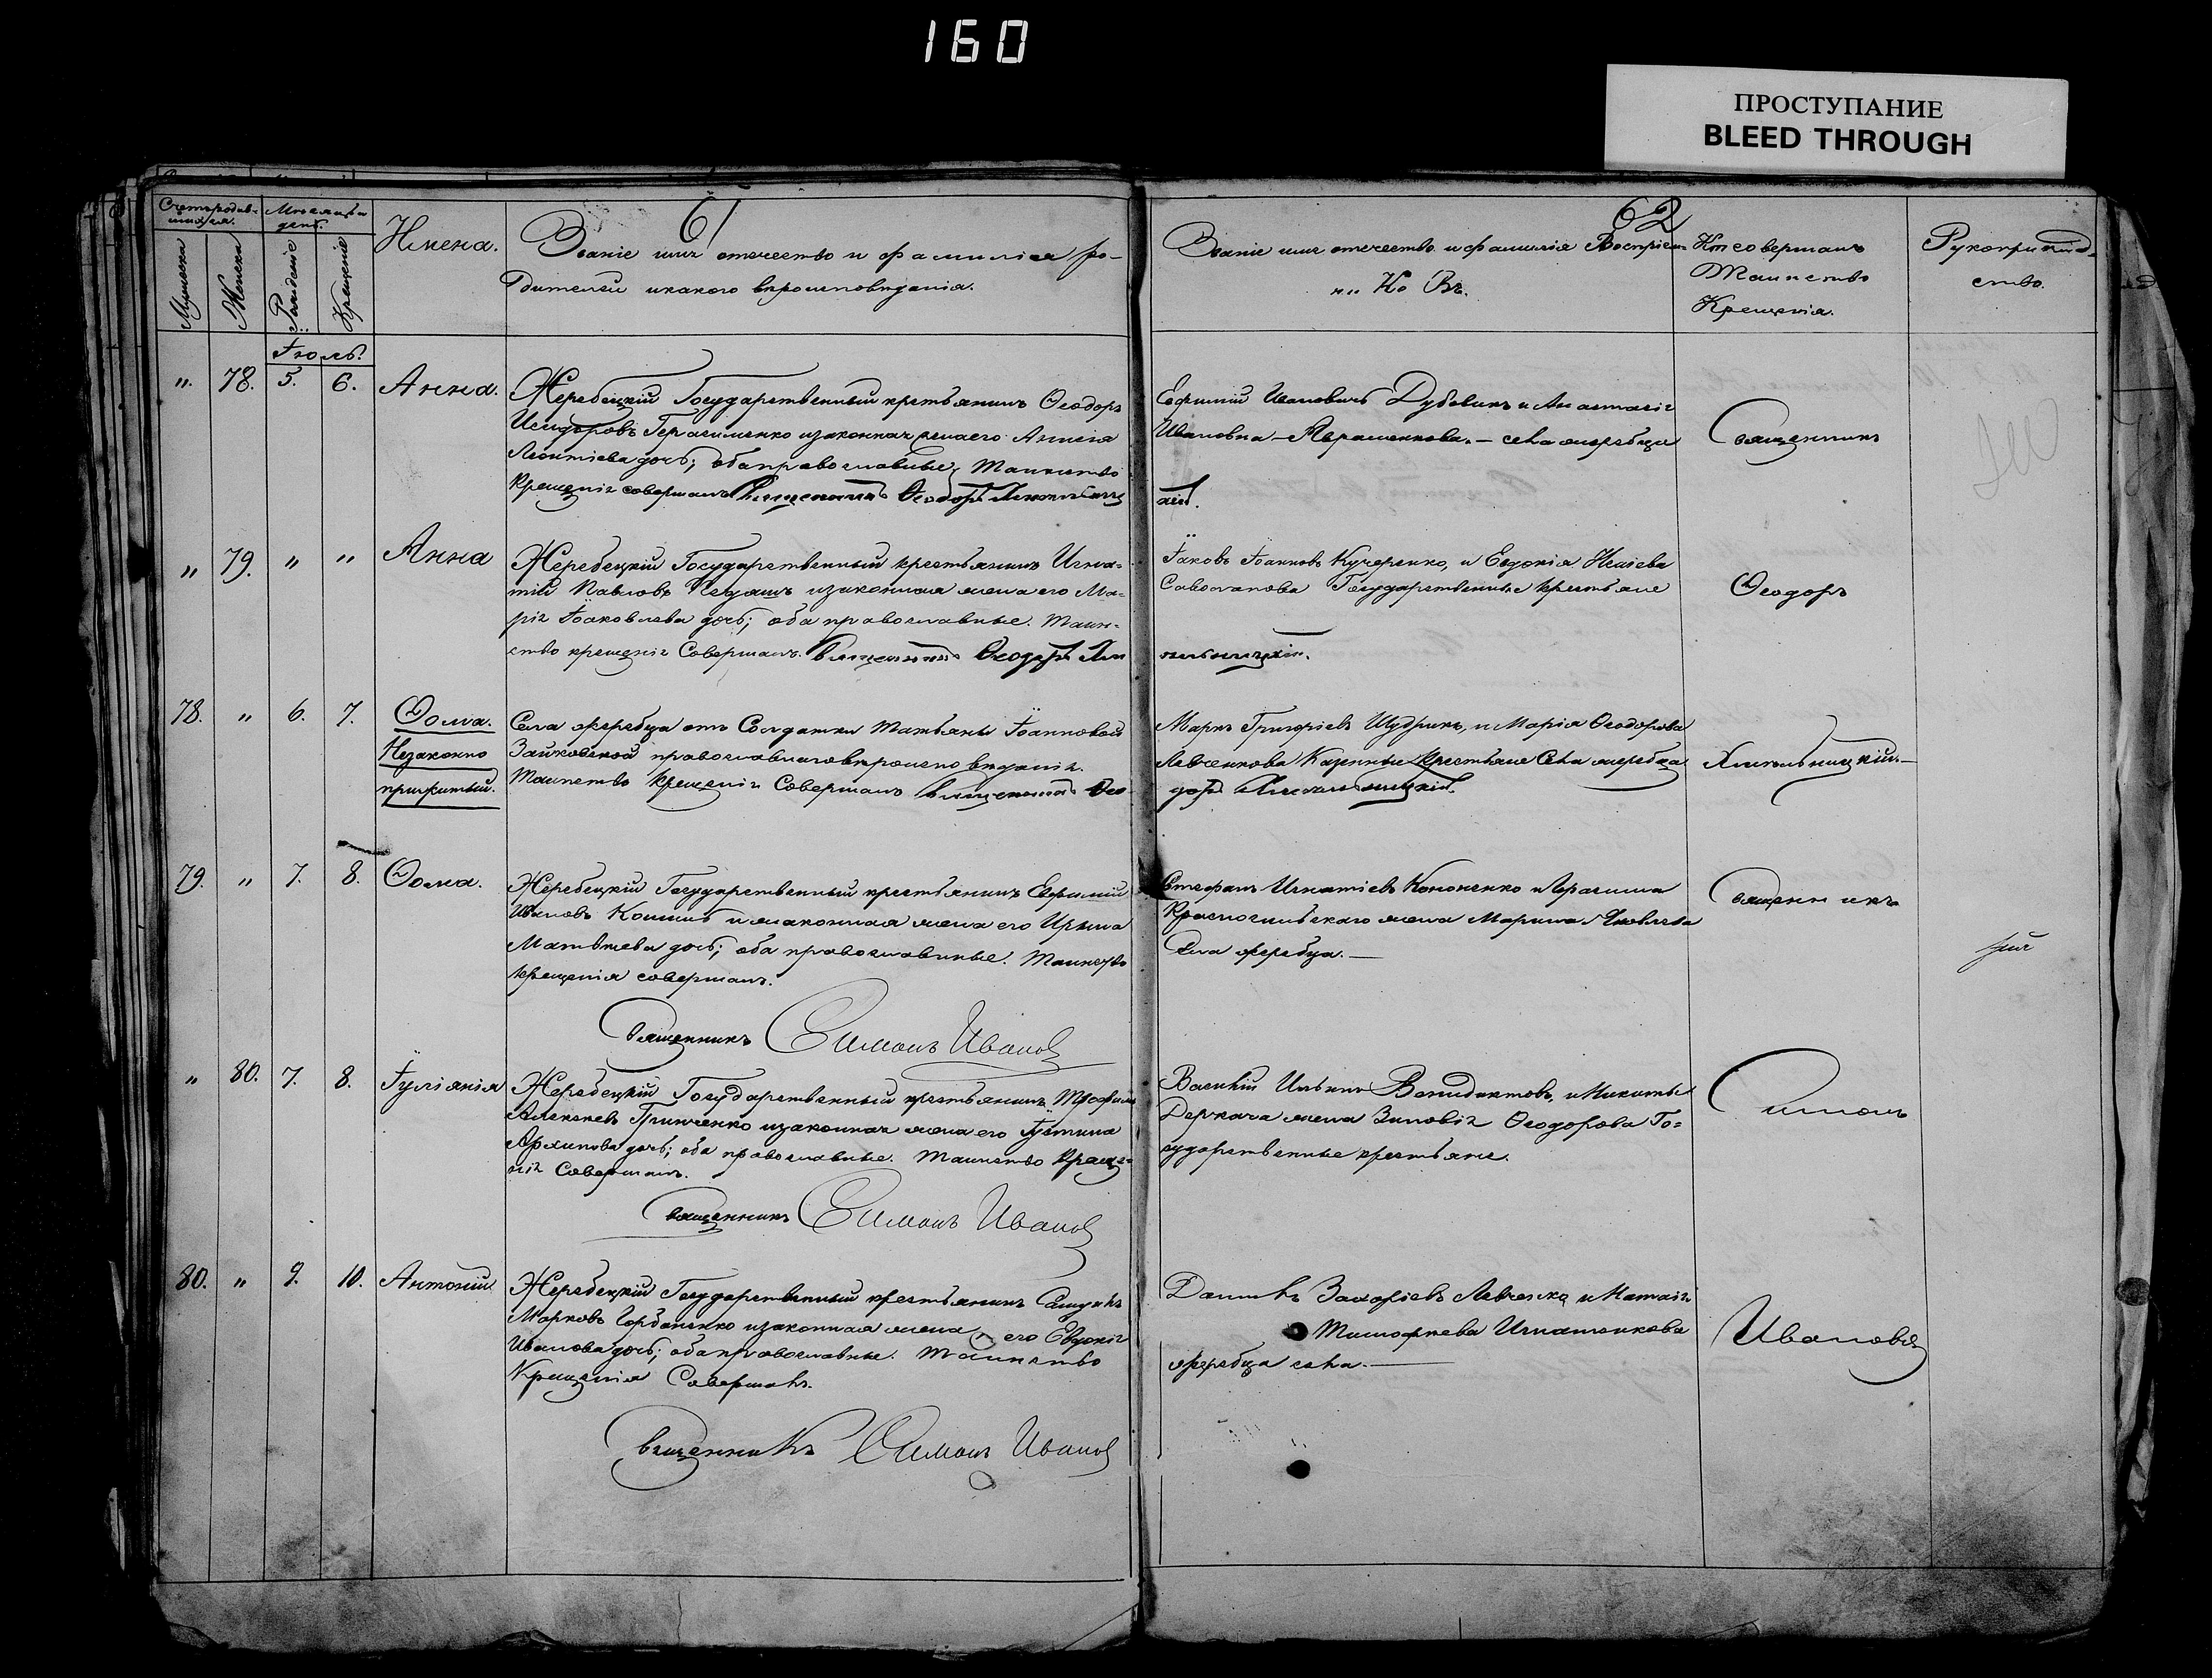 160
ПРОСТУПАНИЕ
BLEED THROUGH
61
Счетъ родив-
шихся.
Мужеска
Женска
Мѣсяцъ и
день.
Рожденіе
Крещеніе
Имена.
Званіе имя отечество и фамилія ро-
дителей и какого вѣроисповѣданія.
62
Званіе имя отечество и фамилія Воспріем-
ни Ко Въ.
Кто совершалъ
Таинство
Крещенія.
Рукоприклад-
ство.
Іюль.
" 78. 5. 6. Анна.
Жеребецкій Государственный крестьянинъ Ѳеодоръ
Исидоровъ Герасименко и законная жена его
Леонтіева дочь; оба православные; Таинство
Крещенія совершалъ Священникъ Ѳеодоръ Хмѣльниц
Ефимій Ивановичъ Дубовикъ и Анастасія
Ивановна Абраменкова. села жеребца
кій.
Священникъ
" 79. " " Анна
Жеребецкій Государственный крестьянинъ Игна-
тій Павловъ и законная жена его Ма-
рія Іоаковлева дочь; оба православные. Таин-
ство крещенія Совершалъ. Священникъ Ѳеодоръ Хмѣ
Іаковъ Іоанновъ Кучеренко, и Евдокія
Государственные крестьяне
льницкій.
Ѳеодоръ
78. " 6. 7. Ѳома.
Незаконно
прижитый.
Села жеребца отъ Солдатки Татьяны Іоанновой
Зайковской православнаго вѣроисповѣданія.
Таинство Крещенія Совершалъ Священникъ Ѳео
Маркъ Григоріевъ Щудрикъ, и Марія Ѳеодорова
Левченкова Казенные Крестьяне Села жеребца
доръ Хмѣльницкій.
Хмѣльницкій.
79. " 7. 8. Ѳома.
Жеребецкій Государственный крестьянинъ Ефимій
Ивановъ и законная жена его Ирина
Матвѣева дочь; оба православные. Таинство
крещенія совершалъ.
Священникъ Симонъ Ивановъ
Стефанъ Игнатіевъ Кононенко и Герасима
Красносельскаго жена Марина Яковлева
Села жеребца.
Священникъ
" 80. 7. 8. Іуліанія
Жеребецкій Государственный крестьянинъ Трофимъ
Алексѣевъ Гринченко и законная жена его Іустина
Архипова дочь; оба православные. Таинство Креще-
нія Совершалъ.
Священникъ Симонъ Ивановъ
Василій Ильинъ Венидиктовъ, и Никиты
Деркача жена Зиновія Ѳеодорова Го-
сударственные крестьяне.
Симонъ
80. " 9. 10. Антоній
Жеребецкій Государственный крестьянинъ
Марковъ Горбаненко и законная жена его Евдокія
Иванова дочь; оба православные. Таинство
Крещенія Совершалъ.
Священникъ Симонъ Ивановъ
Даніилъ Захаріевъ Левченко и Наталія
Тимофеева Игнатенкова
жеребца села.
Ивановъ